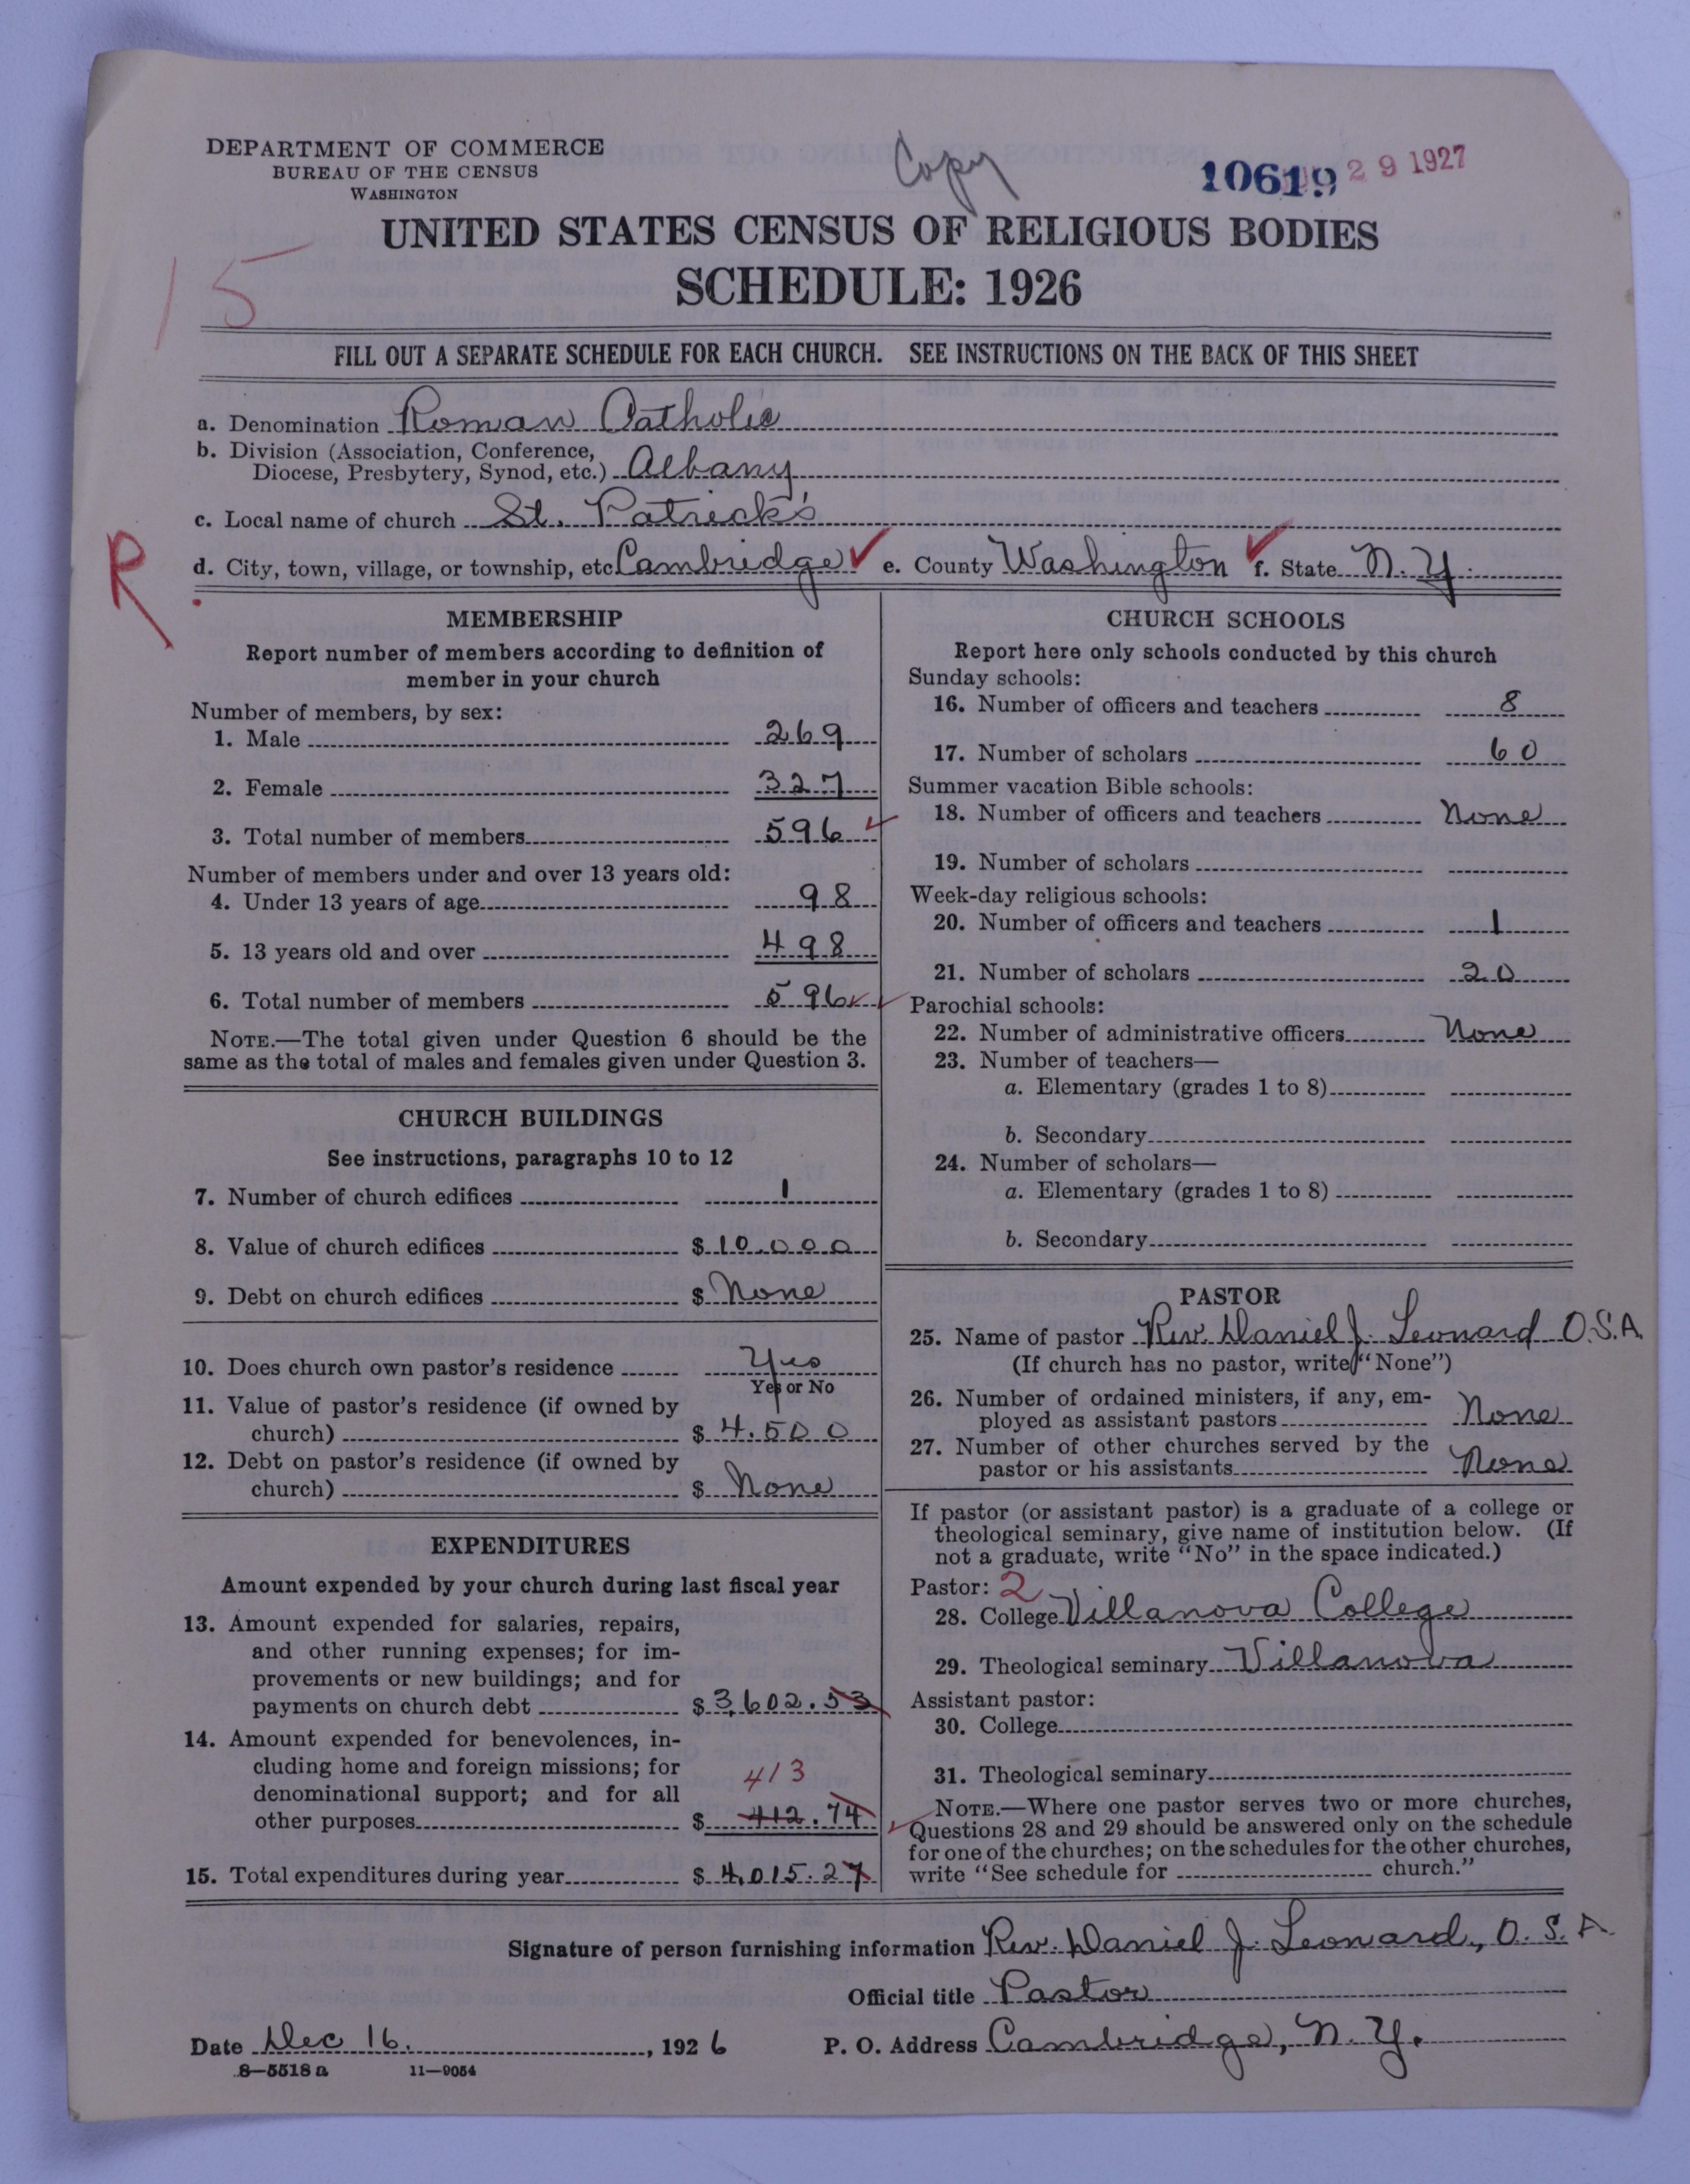 DEPARTMENT OF COMMERCE
BUREAU OF THE CENSUS
WASHINGTON
Copy
10619
29 1927
UNITED STATES CENSUS OF RELIGIOUS BODIES
SCHEDULE: 1926
15
FILL OUT A SEPARATE SCHEDULE FOR EACH CHURCH. SEE INSTRUCTIONS ON THE BACK OF THIS SHEET
a. Denomination Roman Catholic
b. Division (Association, Conference,
Diocese, Presbytery, Synod, etc.) Albany
c. Local name of church St. Patrick's
R.
d. City, town, village, or township, etc. Cambridge ✓ e. County Washington ✓ f. State N. Y.
MEMBERSHIP
Report number of members according to definition of
member in your church
Number of members, by sex:
1. Male 269
2. Female 327
3. Total number of members 596 ✓
Number of members under and over 13 years old:
4. Under 13 years of age 98
5. 13 years old and over 498
6. Total number of members 596 ✓ ✓
NOTE.—The total given under Question 6 should be the
same as the total of males and females given under Question 3.
CHURCH BUILDINGS
See instructions, paragraphs 10 to 12
7. Number of church edifices 1
8. Value of church edifices $ 10.000
9. Debt on church edifices $ None
10. Does church own pastor's residence Yes
Yes or No
11. Value of pastor's residence (if owned by
church) $ 4.500
12. Debt on pastor's residence (if owned by
church) $ None
EXPENDITURES
Amount expended by your church during last fiscal year
13. Amount expended for salaries, repairs,
and other running expenses; for im-
provements or new buildings; and for
payments on church debt $ 3,602.53
14. Amount expended for benevolences, in-
cluding home and foreign missions; for
denominational support; and for all
413
other purposes $ 412.74
15. Total expenditures during year $ 4,015.27
CHURCH SCHOOLS
Report here only schools conducted by this church
Sunday schools:
16. Number of officers and teachers 8
17. Number of scholars 60
Summer vacation Bible schools:
18. Number of officers and teachers None
19. Number of scholars
Week-day religious schools:
20. Number of officers and teachers 1
21. Number of scholars 20
Parochial schools:
22. Number of administrative officers None
23. Number of teachers—
a. Elementary (grades 1 to 8)
b. Secondary
24. Number of scholars—
a. Elementary (grades 1 to 8)
b. Secondary
PASTOR
25. Name of pastor Rev. Daniel J. Leonard O.S.A.
(If church has no pastor, write "None")
26. Number of ordained ministers, if any, em-
ployed as assistant pastors None
27. Number of other churches served by the
pastor or his assistants None
If pastor (or assistant pastor) is a graduate of a college or
theological seminary, give name of institution below. (If
not a graduate, write "No" in the space indicated.)
Pastor: 2
28. College Villanova College
29. Theological seminary Villanova
Assistant pastor:
30. College
31. Theological seminary
NOTE.—Where one pastor serves two or more churches,
Questions 28 and 29 should be answered only on the schedule
for one of the churches; on the schedules for the other churches,
write "See schedule for church."
Signature of person furnishing information Rev. Daniel J. Leonard, O. S. A.
Official title Pastor
Date Dec 16. , 1926 P. O. Address Cambridge, N. Y.
8—5518 a 11—9054